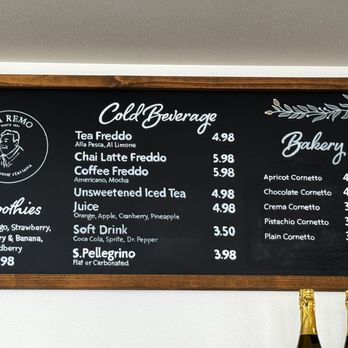 REMO
Cold Beverage
Tea Freddo 4.98
Alla Pesca, Al Limone
Chai Latte Freddo 5.98
Coffee Freddo 5.98
Americano, Mocha
Unsweetened Iced Tea 4.98
Juice 4.98
Orange, Apple, Cranberry, Pineapple
Soft Drink 3.50
Coca Cola, Sprite, Dr. Pepper
S.Pellegrino 3.98
Flat or Carbonated
Bakery
Apricot Cornetto
Chocolate Cornetto
Crema Cornetto
Pistachio Cornetto
Plain Cornetto
Strawberry,
& Banana,
98